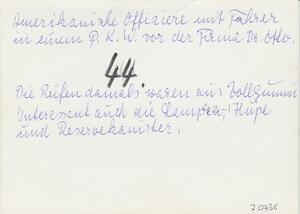 Amerikanische Offiziere mit Fahrer
in einem P. K. W. vor der Firma Dr. Otto.
44.
Die Reifen damals waren aus Vollgummi
Interessant auch die Lampen, Hupe
und Reservekanister.
7.0736